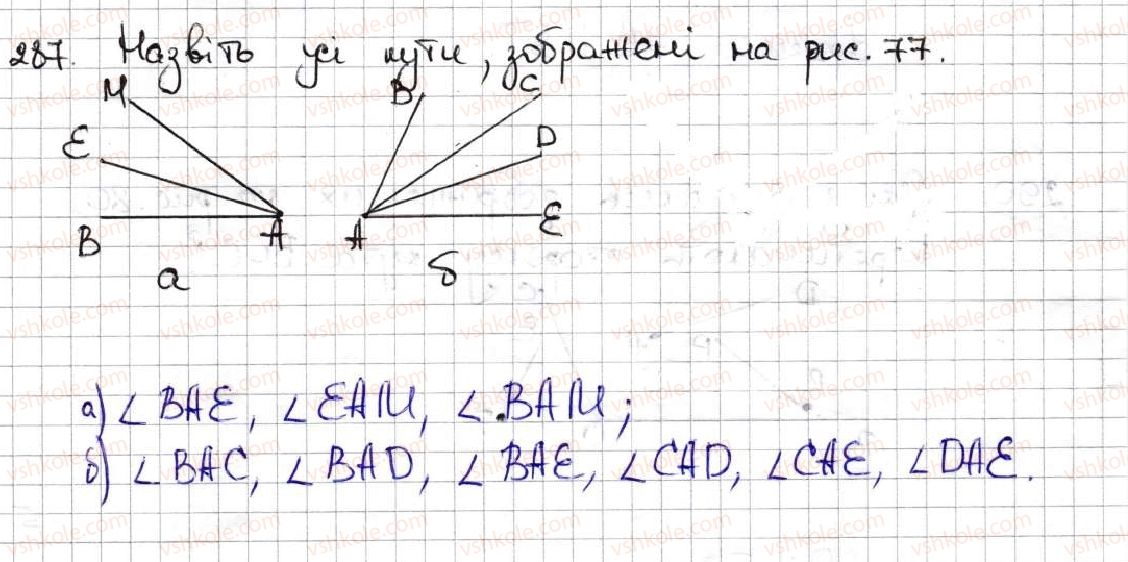 287. Назвіть усі кути, зображені на рис. 77.
M B C
E D
B A A E
а б
а) ∠BAE, ∠EAM, ∠BAM;
б) ∠BAC, ∠BAD, ∠BAE, ∠CAD, ∠CAE, ∠DAE.
vshkole.com